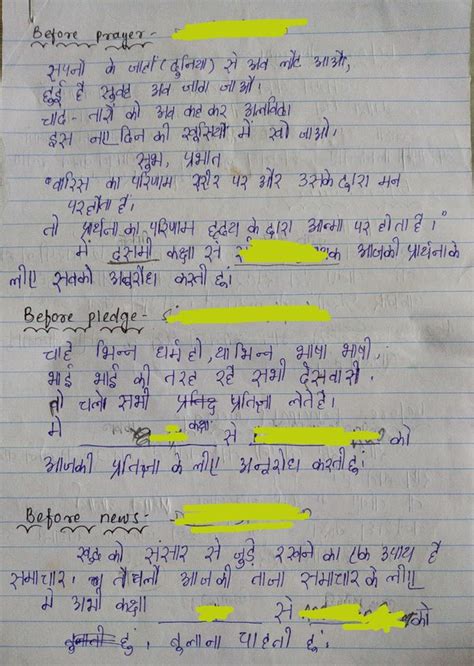 Before prayer-
सपनो के जहाँ (दुनिया) से अब लौट आओ,
हुई है सुबह अब जाग जाओ।
चाँद-तारों को अब कह कर अलविदा
इस नए दिन की खुशियों में खो जाओ।
सुभ, प्रभात
"वारिस का परिणाम शरीर पर और उसके द्वारा मन
पर होता है।
तो प्रार्थना का परिणाम हृदय के द्वारा आत्मा पर होता है।"
में दसमी कक्षा से आजकी प्रार्थना के
लीए सबको अनुरोध करती हुं।
Before pledge-
चाहे भिन्न धर्म हो, या भिन्न भाषा भाषी,
भाई भाई की तरह रहै सभी देसवासी।
तो चलो सभी प्रतिज्ञा लेते है।
मे कक्षा से को
आजकी प्रतिज्ञा के लीए अनुरोध करती हुं।
Before news-
खुद को संसार से जुड़े रखने का एक उपाय है
समाचार। तो चलो आजकी ताजा समाचार के लीए
में अभी कक्षा से को
बुलाती हुं। बुलाना चाहती हुं।